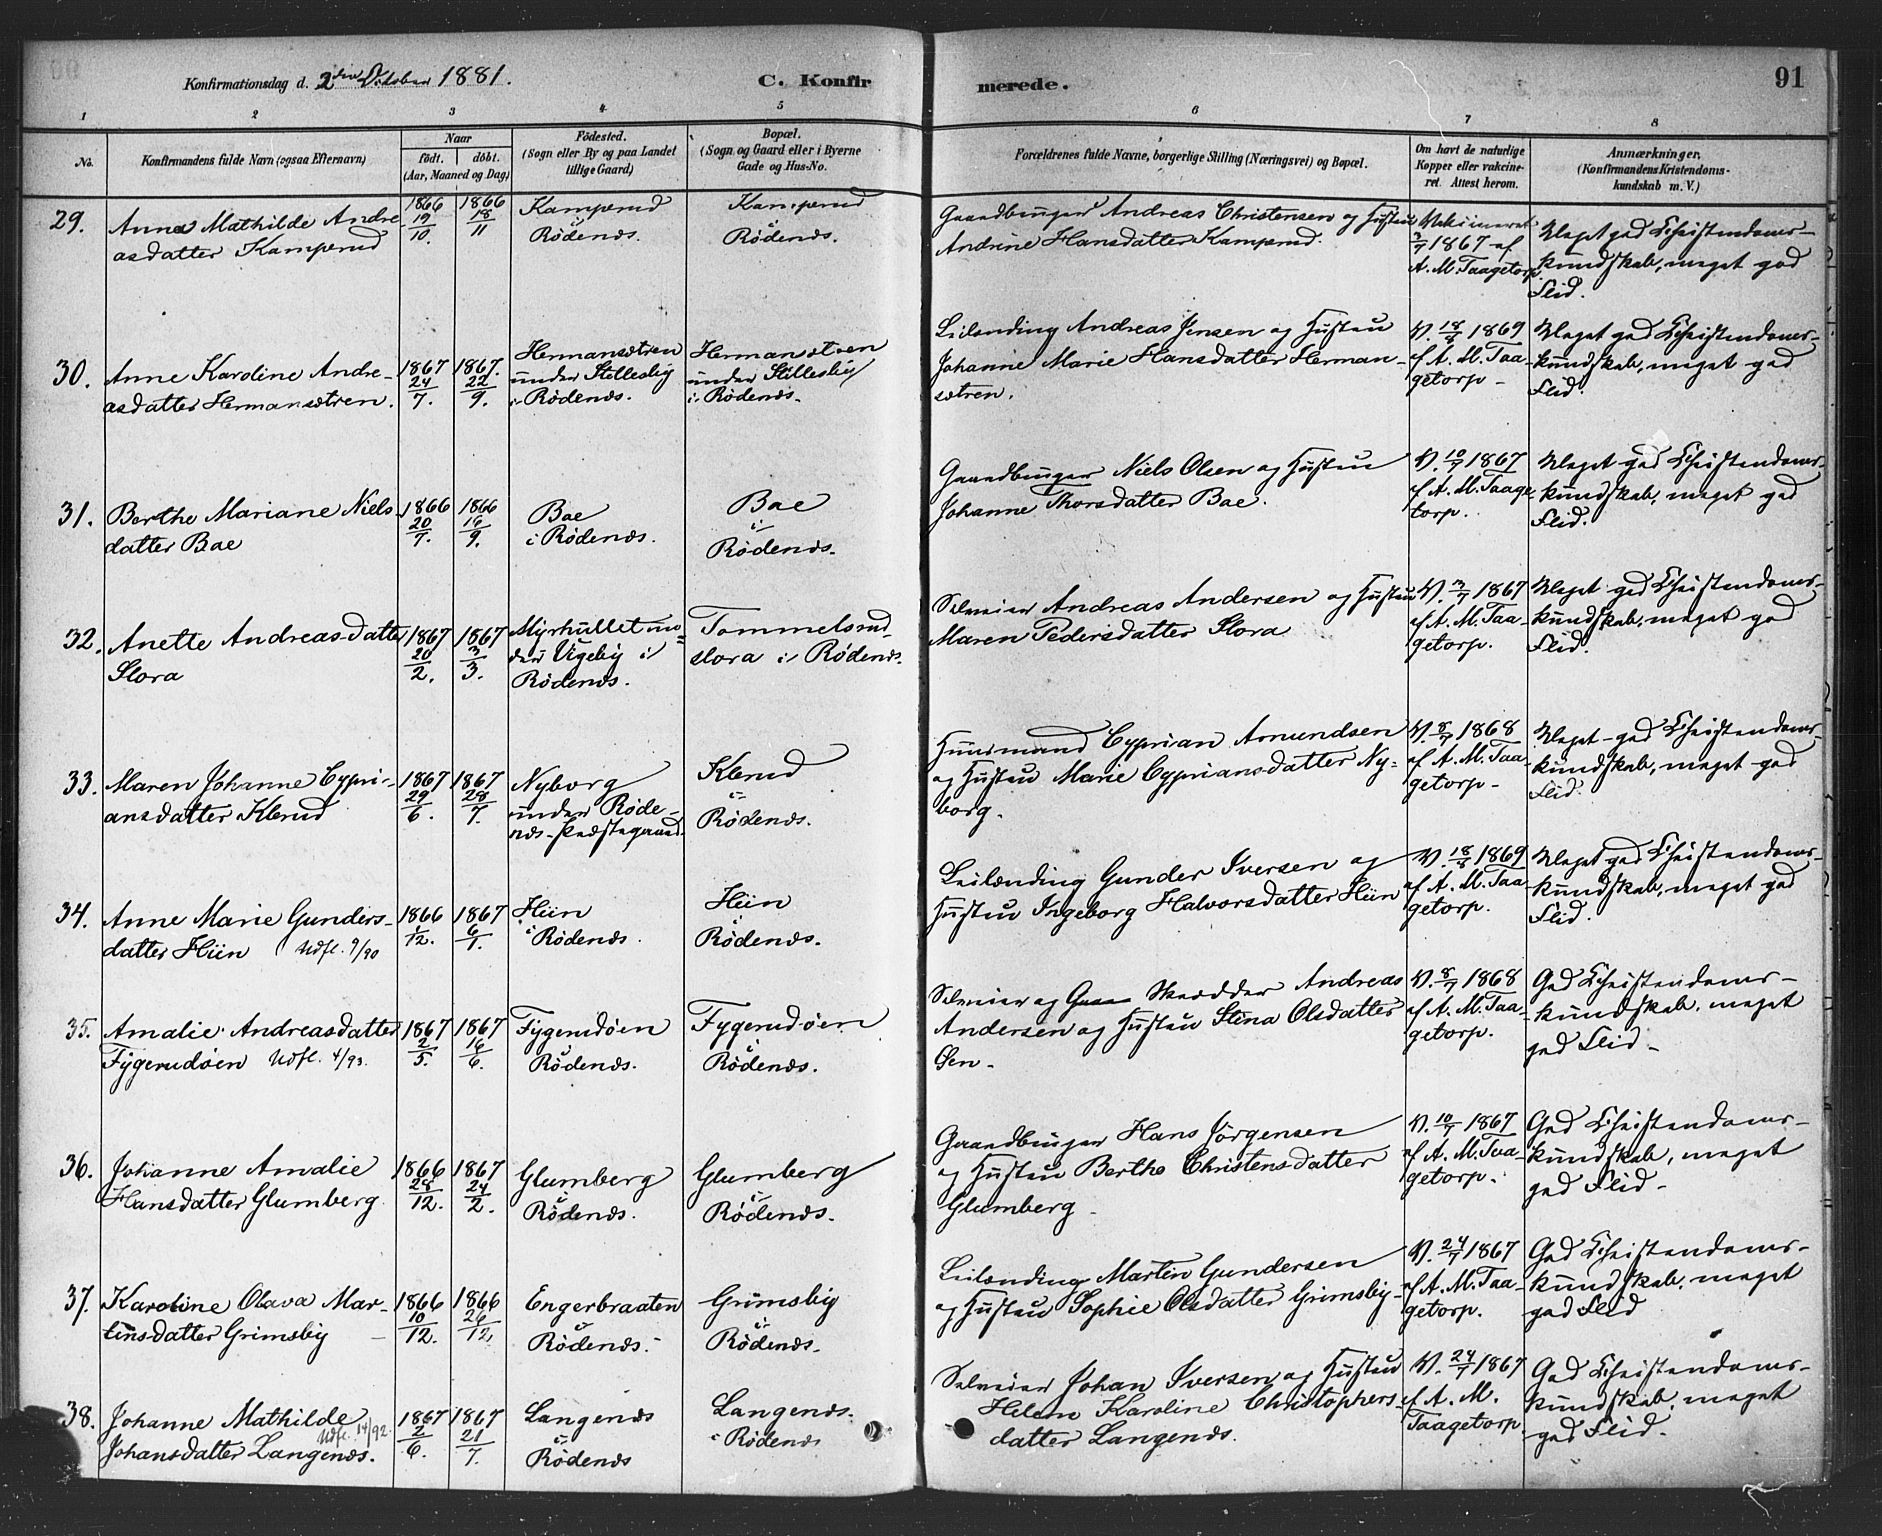 Konfirmationsdag d. 2den October 1881.
C. Konfir
merede.
91
1 2 3 4 5 6 7 8
No.
Konfirmandens fulde Navn (ogsaa Efternavn)
Naar
födt. döbt.
(Aar, Maaned og Dag)
Födested.
(Sogn eller By og paa Landet
tillige Gaard)
Bopæl.
(Sogn og Gaard eller i Byerne
Gade og Hus-No.
Forældrenes fulde Navne, borgerlige Stilling (Næringsvei) og Bopæl.
Om havt de naturlige
Kopper eller vakcine-
ret. Attest herom.
Anmærkninger.
(Konfirmandens Kristendoms-
kundskab m. V.)
29.
Anna Mathilde Andre-
asdatter Kamperud
1866 19/10.
1866 18/11
Kamperud
i
Rödenæs.
Kamperud
i
Rödenæs.
Gaardbruger Andreas Christensen og Hustru
Andrine Hansdatter Kamperud.
Vakcineret
3/7 1867 af
A. M. Taagetorp.
Meget god Christendoms-
kundskab, meget god
Flid.
30.
Anne Karoline Andre-
asdatter Hermansætren.
1867 24/7.
1867. 22/9.
Hermansætren
under Stillesby
i Rödenæs.
Hermansætren
under Stillesby
i Rödenæs.
Leilænding Andreas Jensen og Hustru
Johanne Marie Hansdatter Herman-
sætren.
V. 18/8 1869
af A. M. Taa-
getorp -
Meget god Christendoms-
kundskab, meget god
Flid.
31.
Berthe Mariane Niels-
datter Bae
1866 20/7.
1866 16/9.
Bae
i Rödenæs.
Bae
i
Rödenæs.
Gaardbruger Niels Olsen og Hustru
Johanne Thorsdatter Bae.
V. 10/7 1867
af A. M. Taage-
torp.
Meget god Christendoms-
kundskab, meget god
Flid.
32.
Anette Andreasdatter
Slora
1867 20/2.
1867 3/3.
Myrhullet un-
der Ugeby i
Rödenæs.
Tommelsrud-
slora i Rödenæs.
Selveier Andreas Andersen og Hustru
Maren Pedersdatter Slora
V. 3/7 1867
af A. M. Taa-
getorp.
Meget god Christendoms-
kundskab, meget god
Flid.
33.
Maren Johanne Cypri-
ansdatter Klerud
1867 29/6.
1867 28/7.
Nyborg
under Röde-
næs-Præstegaard.
Klerud
i
Rödenæs.
Huusmand Cyprian Amundsen
og Hustru Marie Cypriansdatter Ny-
borg.
V. 8/7 1868
af A. M. Taa-
getorp -
Meget god Christendoms-
kundskab, meget god
Flid.
34.
Anne Marie Gunders-
datter Hiin Udfl. 9/90
1866 1/12.
1867 6/1.
Hiin
i Rödenæs.
Hiin
i
Rödenæs.
Leilænding Gunder Iversen og
Hustru Ingeborg Halvorsdatter Hiin
V. 18/8 1869
af A. M. Taa-
getorp.
Meget god Christendoms-
kundskab, meget god
Flid.
35.
Amalie Andreasdatter
Fygerudöen Udfl. 4/93.
1867 2/5.
1867 16/6.
Fygerudöen
i
Rödenæs.
Fygerudöen
i
Rödenæs.
Selveier og Skrædder Andreas
Andersen og Hustru Stina Olsdatter
Öen -
V. 8/7 1868
af A. M. Taa-
getorp.
God Christendoms-
kundskab, meget
god Flid -
36.
Johanne Amalie
Hansdatter Glumberg
1866 28/12.
1867 24/2.
Glumberg
i
Rödenæs.
Glumberg
i
Rödenæs.
Gaardbruger Hans Jörgensen
og Hustru Berthe Christensdatter
Glumberg -
V. 10/7 1867
af A. M. Taa-
getorp.
God Christendoms-
kundskab, meget
god Flid -
37.
Karoline Olava Mar-
tinsdatter Grimsby
1866 10/12.
1866 26/12.
Engerbraaten
i
Rödenæs.
Grimsby
i
Rödenæs.
Leilænding Martin Gundersen
og Hustru Sophie Olsdatter Grimsby -
V. 24/7 1867
af A. M. Taa-
getorp.
God Christendoms-
kundskab, meget
god Flid
38.
Johanne Mathilde
Udfl. 14/92.
Johansdatter Langenæs.
1867 2/6.
1867 21/7.
Langenæs
i
Rödenæs
Langenæs.
i Rödenæs
Selveier Johan Iversen og Hustru
Helene Karoline Christophers-
datter Langenæs.
V. 24/7 1867
af A. M.
Taagetorp.
God Christendoms-
kundskab, meget
god Flid.